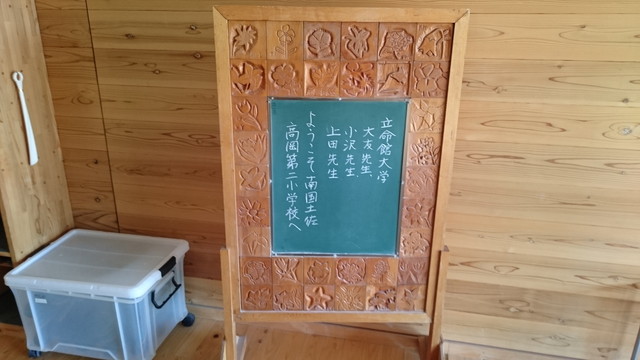 立命館大学
大友先生、
小沢先生、
上田先生
ようこそ南国土佐
高岡第二小学校へ